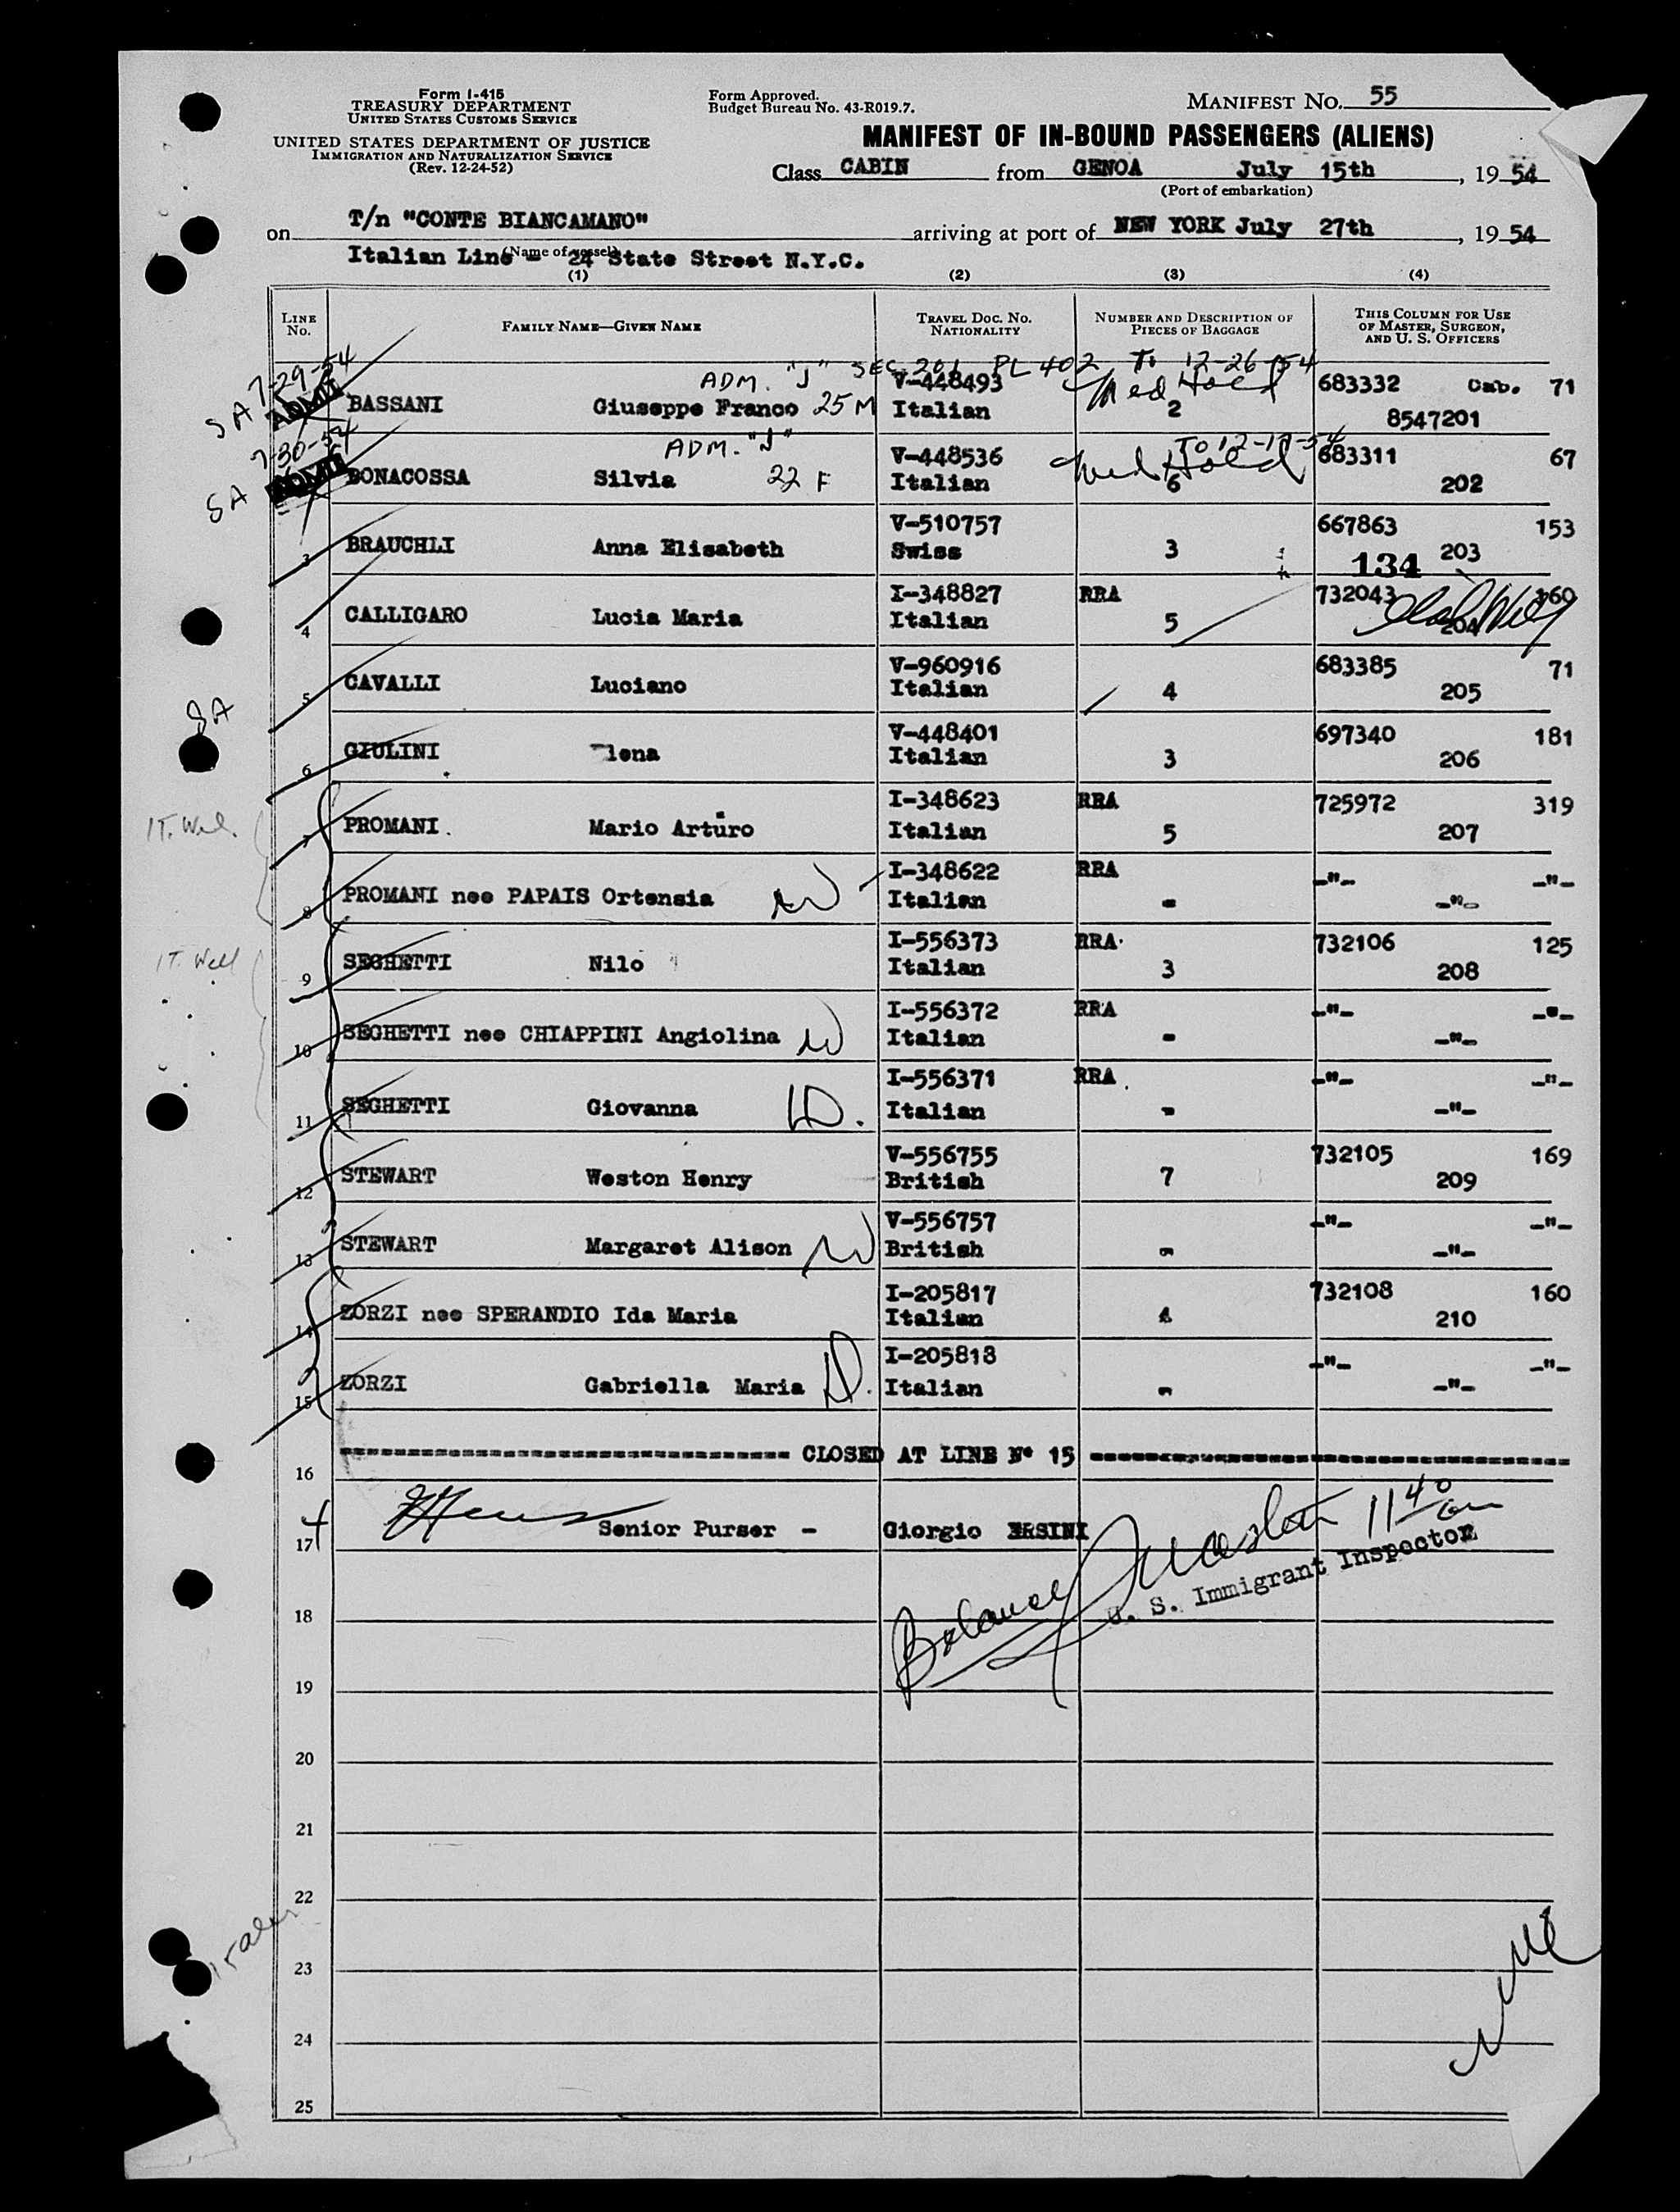 Form I-415
TREASURY DEPARTMENT
UNITED STATES CUSTOMS SERVICE
UNITED STATES DEPARTMENT OF JUSTICE
IMMIGRATION AND NATURALIZATION SERVICE
(Rev. 12-24-52)
Form Approved.
Budget Bureau No. 43-R019.7.
MANIFEST NO. 55
MANIFEST OF IN-BOUND PASSENGERS (ALIENS)
Class CABIN from GENOA July 15th, 19 54
(Port of embarkation)
on T/n "CONTE BIANCAMANO" arriving at port of NEW YORK July 27th, 19 54
(Name of vessel)
Italian Line - 24 State Street N.Y.C.
(1) (2) (3) (4)
LINE NO. FAMILY NAME—GIVEN NAME TRAVEL DOC. NO. NATIONALITY NUMBER AND DESCRIPTION OF PIECES OF BAGGAGE THIS COLUMN FOR USE OF MASTER, SURGEON, AND U. S. OFFICERS
7-29-54 ADM. "J" SEC. 201 PL 402 To 12-26-54
SA ADMIT V-448493 Med Hold 683332 Cab. 71
BASSANI Giuseppe Franco 25 M Italian 2 8547201
7-30-54 ADM. "J" To 12-19-54
SA V-448536 Med Hold 683311 67
BONACOSSA Silvia 22 F Italian 6 202
V-510757 667863 153
3 BRAUCHLI Anna Elisabeth Swiss 3 203
134
I-348827 RRA 732043 160
4 CALLIGARO Lucia Maria Italian 5 204
V-960916 683385 71
5 CAVALLI Luciano Italian 4 205
SA
V-448401 697340 181
6 GIULINI lena Italian 3 206
I-348623 RRA 725972 319
IT. Wel.
7 PROMANI Mario Arturo Italian 5 207
I-348622 RRA -"- -"-
8 PROMANI nee PAPAIS Ortensia W Italian - -"-
I-556373 RRA 732106 125
IT. Well
9 SEGHETTI Nilo Italian 3 208
I-556372 RRA -"- -"-
10 SEGHETTI nee CHIAPPINI Angiolina W Italian - -"-
I-556371 RRA -"- -"-
11 SEGHETTI Giovanna D. Italian - -"-
V-556755 732105 169
12 STEWART Weston Henry British 7 209
V-556757 -"- -"-
13 STEWART Margaret Alison W British - -"-
I-205817 732108 160
14 ZORZI nee SPERANDIO Ida Maria Italian 4 210
I-205818 -"- -"-
15 ZORZI Gabriella Maria D. Italian - -"-
CLOSED AT LINE N° 15
16
17 Senior Purser - Giorgio ERSINI
11 40 am
Balance
U. S. Immigrant Inspector
18
19
20
21
22
23
24
25